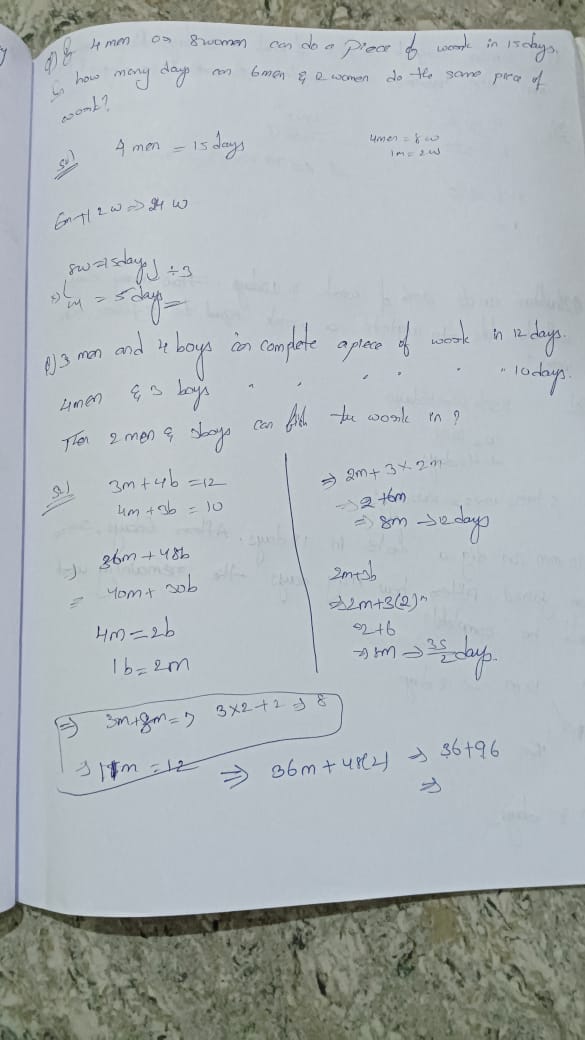 Q) If 4 men or 8 women can do a piece of work in 15 days.
In how many days can 6 men & 2 women do the same piece of
work?
Sol) 4 men = 15 days
4 men = 8 w
1m = 2w
6m + 12w ⇒ 24 w
8w = 15 days } ÷ 3
= 5 days
Q) 3 men and 4 boys can complete a piece of work in 12 days.
4 men & 3 boys " " " " " 10 days.
Then 2 men & 3 boys can the work in ?
Sol) 3m + 4b = 12
4m + 3b = 10
⇒ 36m + 48b
= 40m + 30b
4m = 2b
1b = 2m
⇒ 2m + 3 × 2m
⇒ 2 + 6m
⇒ 8m ⇒ 12 days
2m + 3b
⇒ 2m + 3(2)m
2 + 6
⇒ 8m ⇒ 35/2 days.
⇒ 3m + 8m = ⇒ 3 × 2 + 2 ⇒ 8
⇒ 11m = 12 ⇒ 36m + 48(2) ⇒ 36 + 96
⇒